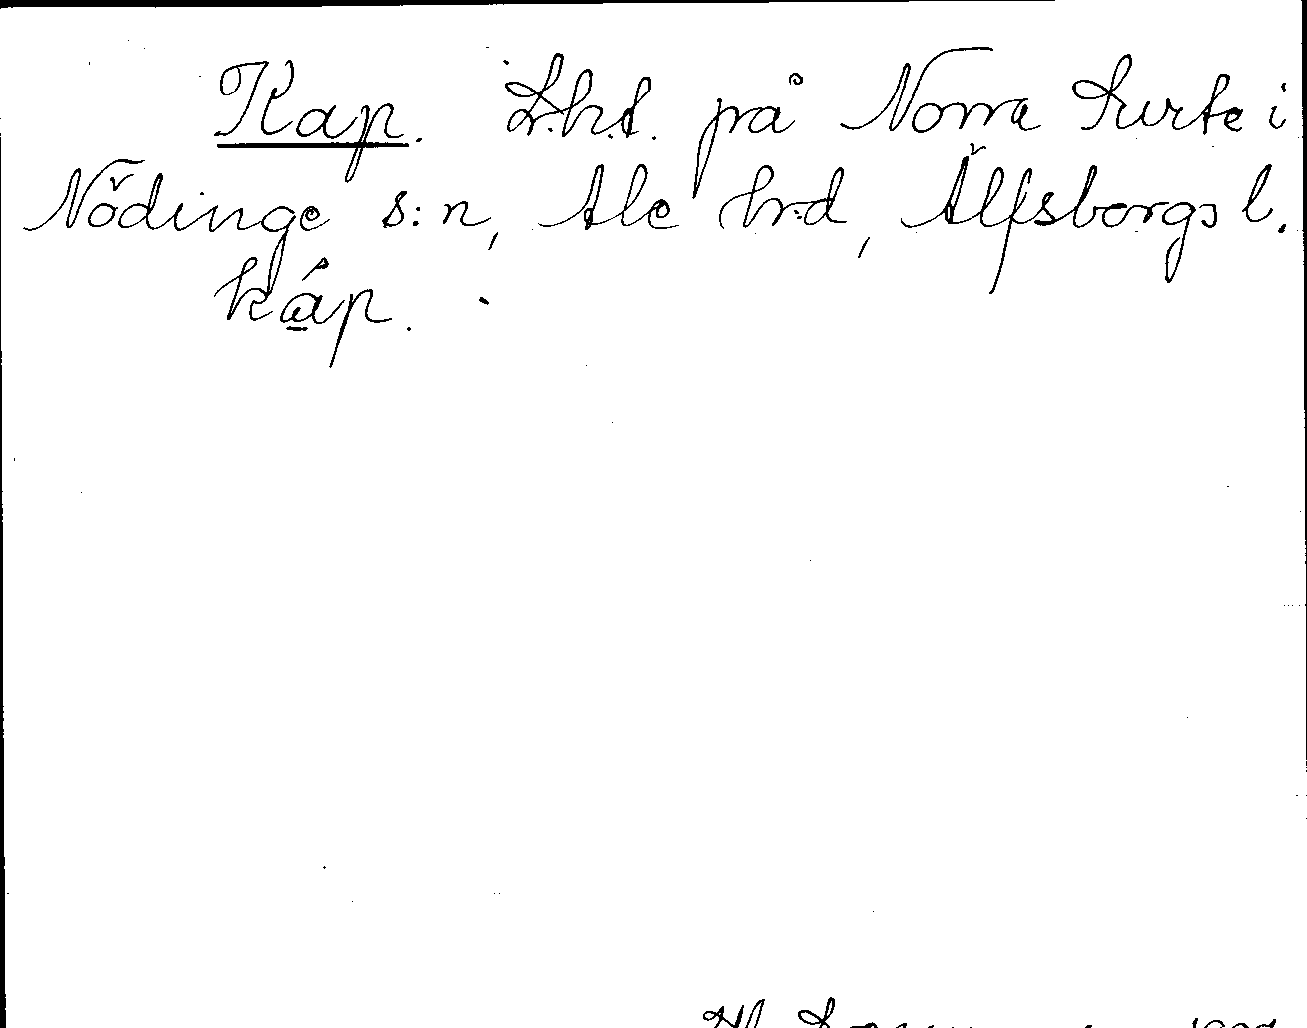 Kap. L.h.t. på Norra Surte i
Nödinge s:n, Ale h:d, Älfsborgs l.
káp.